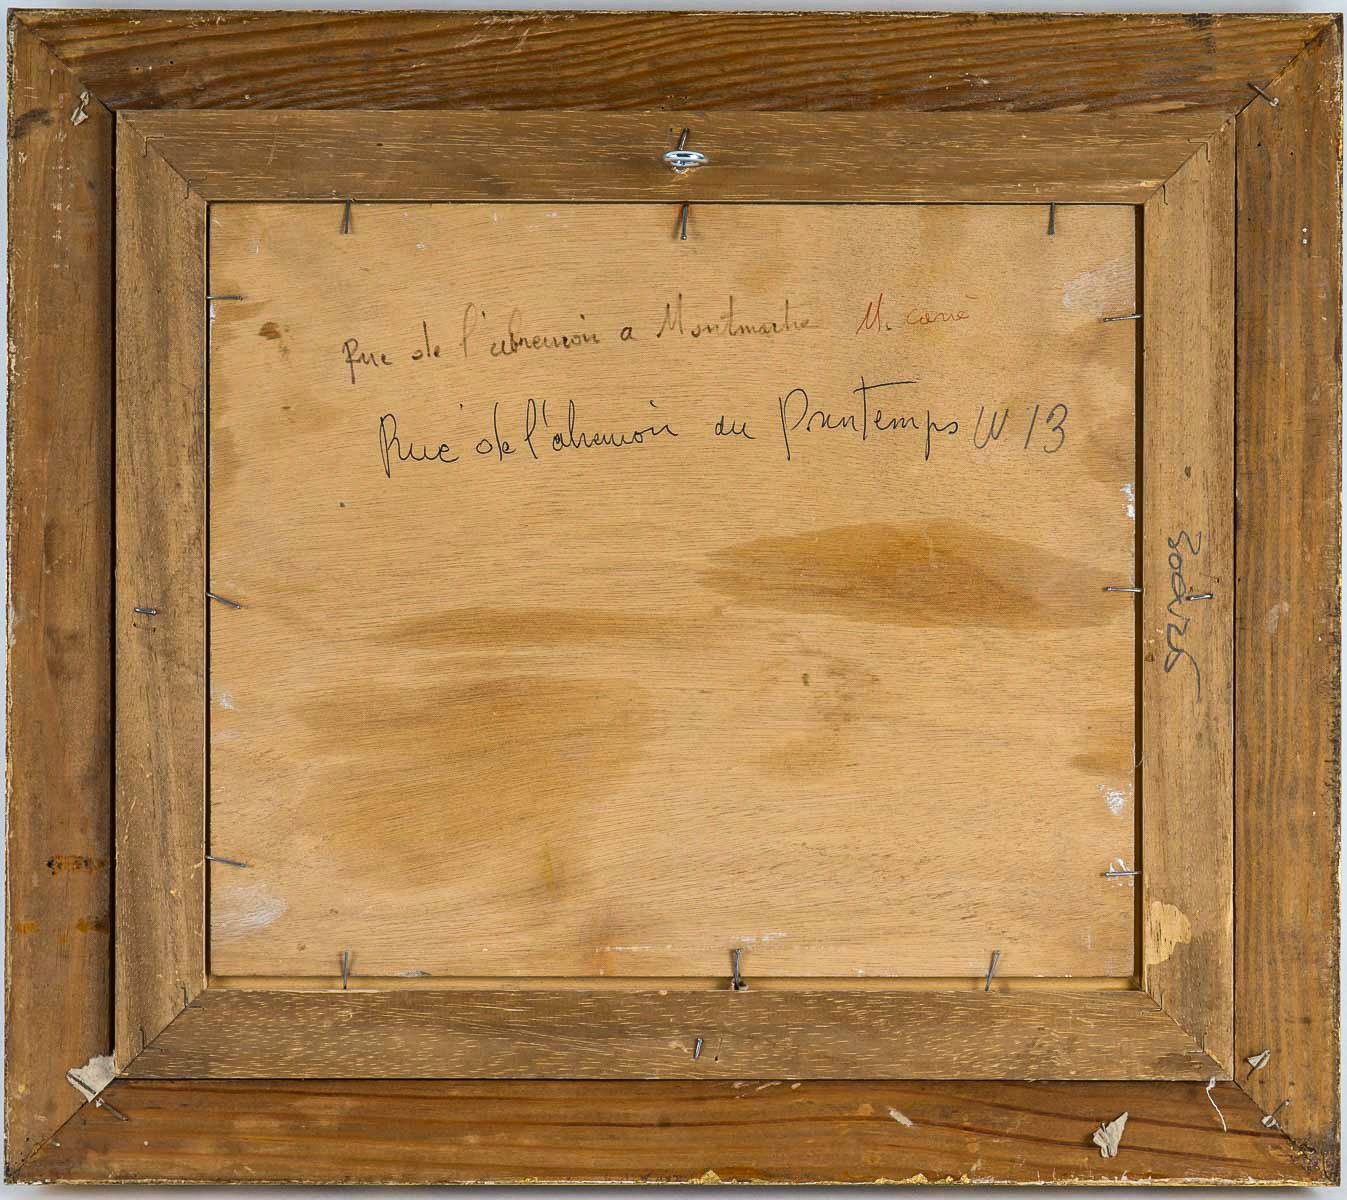 Rue de l'abreuvoir a Montmartre M. carré
Rue de l'abreuvoir au Printemps W 13